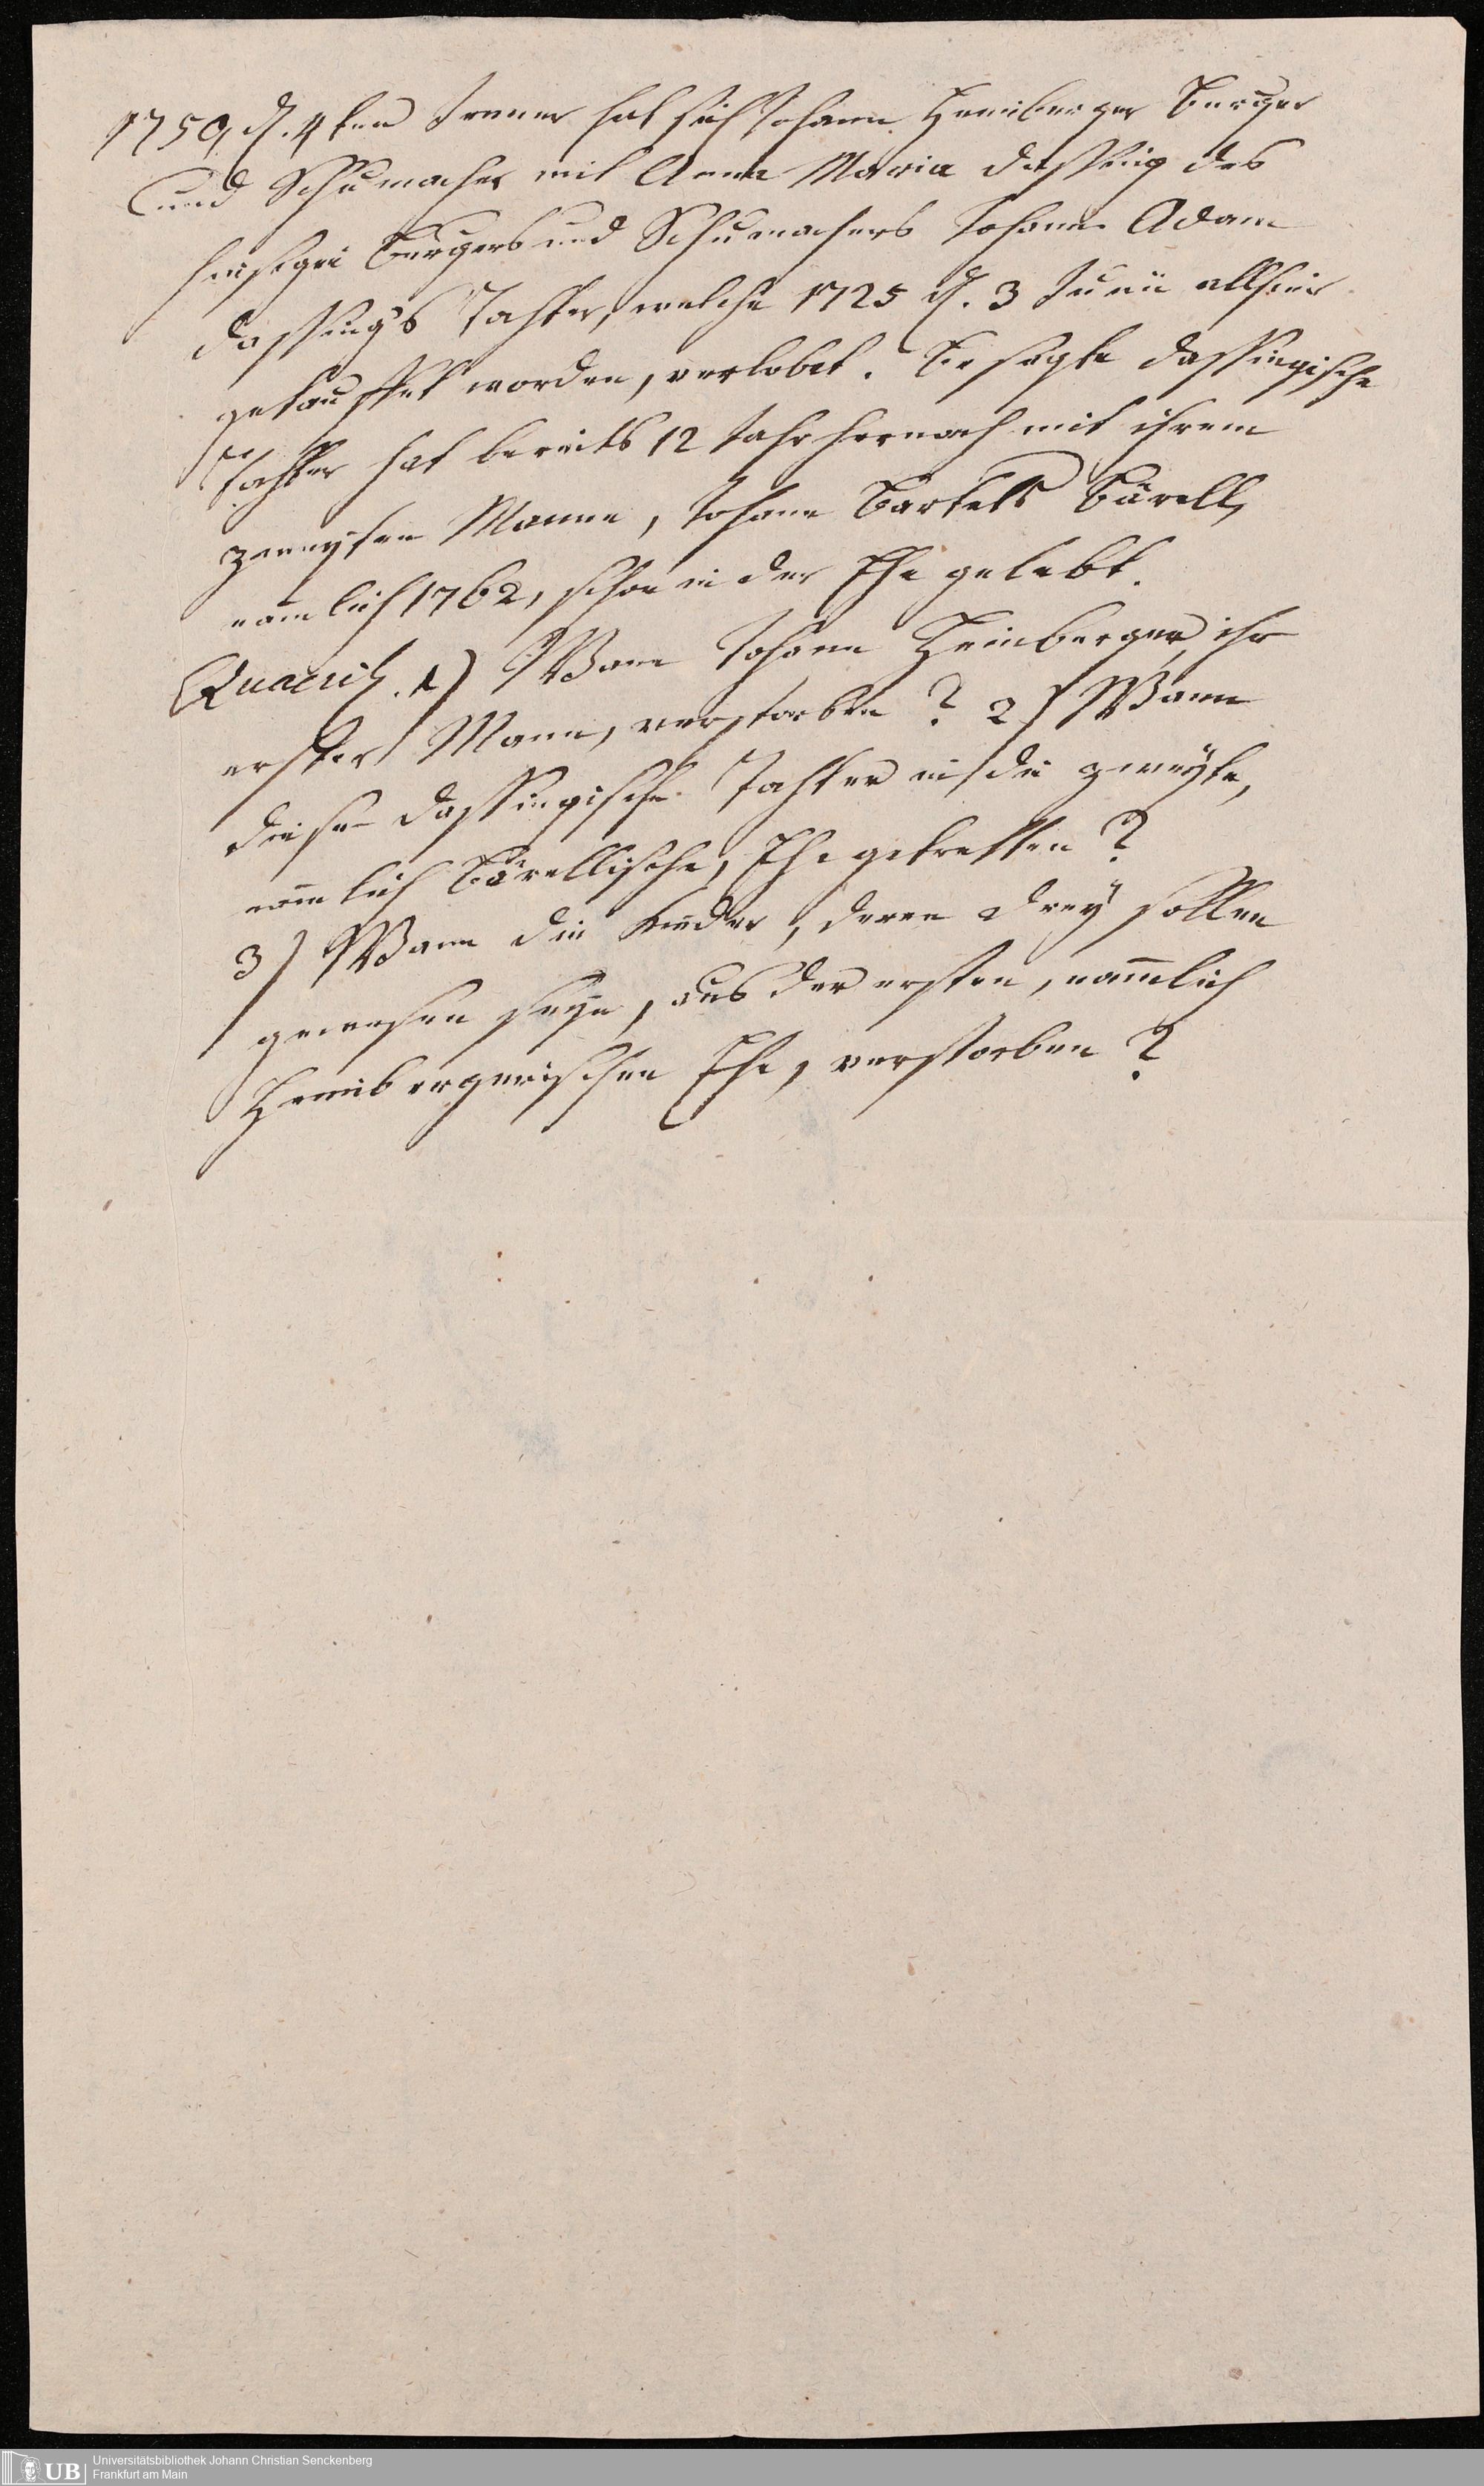 1750, d. 4ten Jenner hat sich Johann Heimberger Burger
und Schumacher mit Anna Maria Dassing des
hiesigen Burgers und Schumachers Johann Adam
Dassings Tochter, welche 1725 d. 3 Junii allhier
getauffet worden, verlobet. Besagte Dassingische
Tochter hat bereits 12 Jahr hernach mit ihrem
zweyten Manne, Johann Bartels Bärell,
nämlich 1762, schon in der Ehe gelebt.
1) Wann Johann Heimberger, ihr
erster Mann, verstorben? 2) Wann
diese Dassingische Tochter in die zweyte,
nämlich Bärellische, Ehe getretten?
3) Wann die Kinder, deren drey sollen
gewesen seyn, aus der ersten, nämlich
Heimbergerischen Ehe, verstorben?
UB
Universitätsbibliothek Johann Christian Senckenberg
Frankfurt am Main